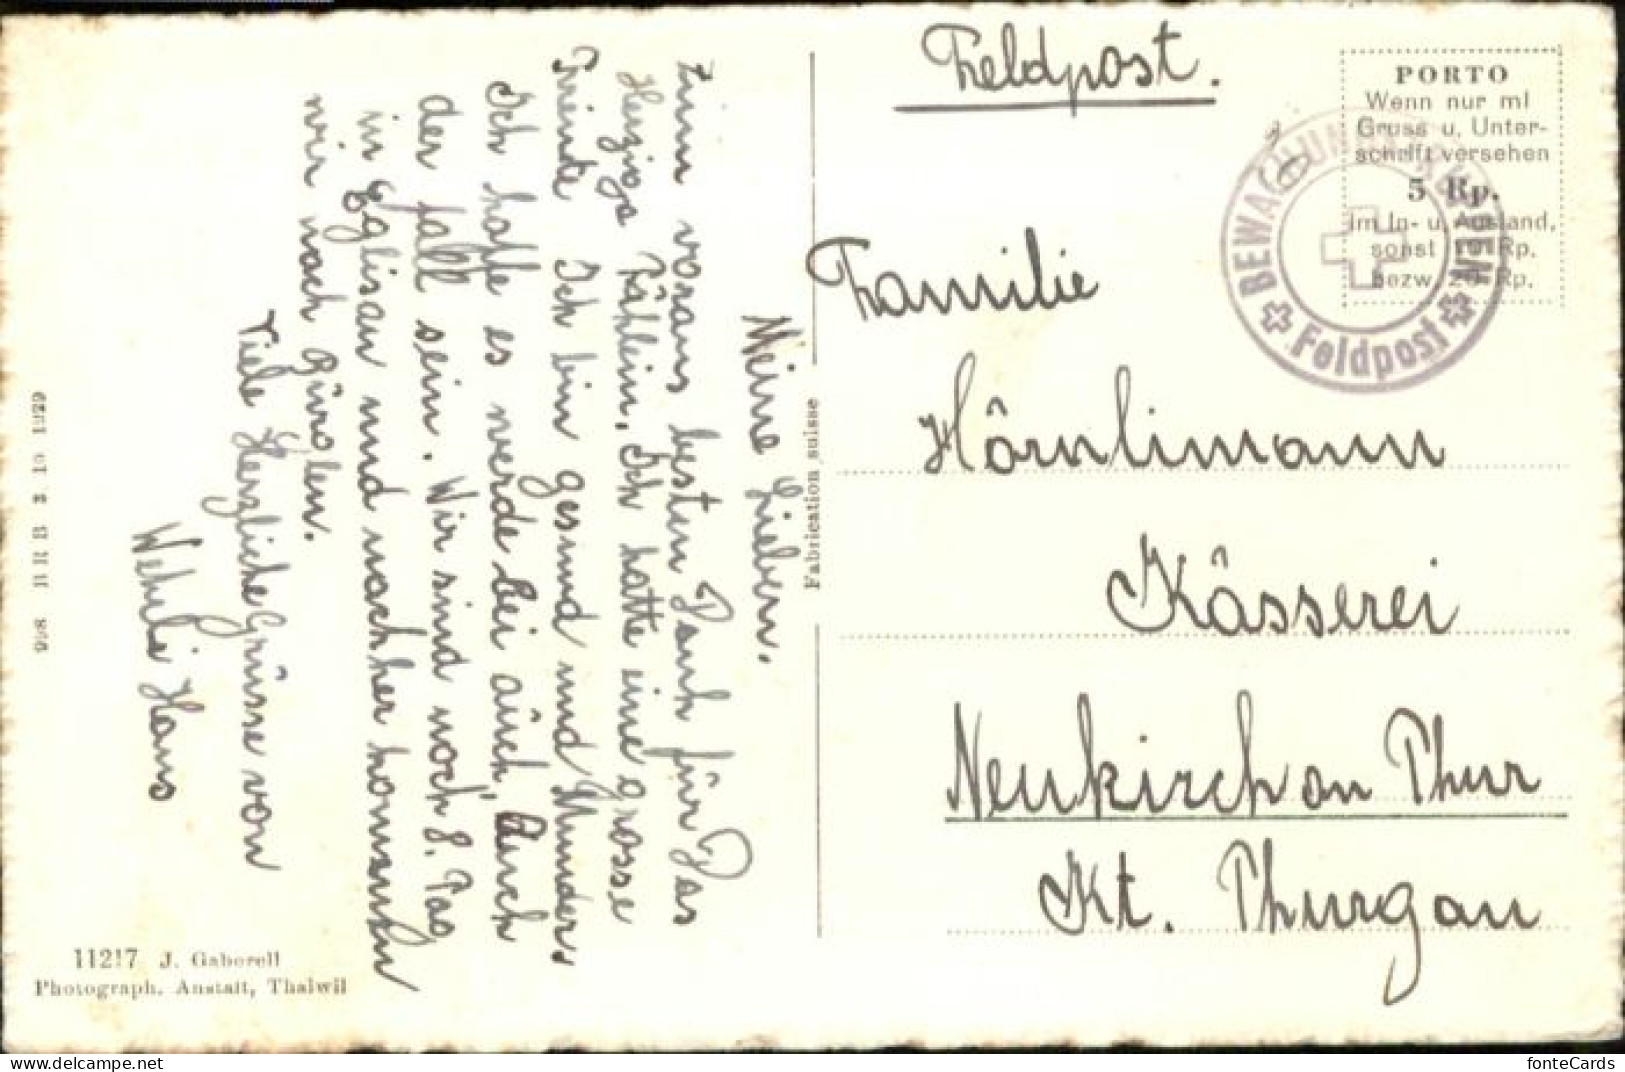 Feldpost.
PORTO
Wenn nur ml
Gruss u. Unter-
schrift versehen
5 Rp.
im In- u. Ausland,
sonst 10 Rp.
bezw. 20 Rp.
BEWACHUNGS
Feldpost
Familie
Hörnlimann
Kässerei
Neukirch an Thur
Kt. Thurgau
Fabrication suisse
Meine Lieben.
Zum voraus besten Dank für Das
Herzige Täfelein. Ich hatte eine grosse
Freude Ich bin gesund und Munders
Ich hoffe es werde bei aüch, Auch
der fall sein. Wir sind noch 8. Tag
in Eglisau und nachher kommen
wir nach
Viele Herzliche Grüsse von
Wehrli Hans
BRB 3 10 1929
11217 J. Gaberell
Photograph. Anstalt, Thalwil
fonteCards